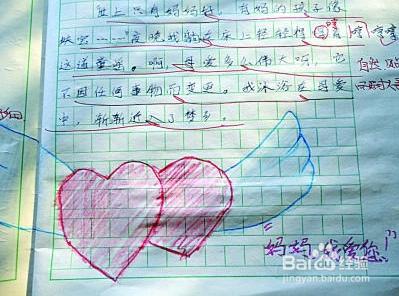 世上只有妈妈好，有妈的孩子像
夜晚我躺在床上轻轻得
这道童谣。啊，母爱多么伟大啊，它
不因任何事物而变更。我沐浴在母爱
中，渐渐进入了梦乡。
自然
"妈妈，我爱您！"
Baidu 百科经验
jingyan.baidu.com